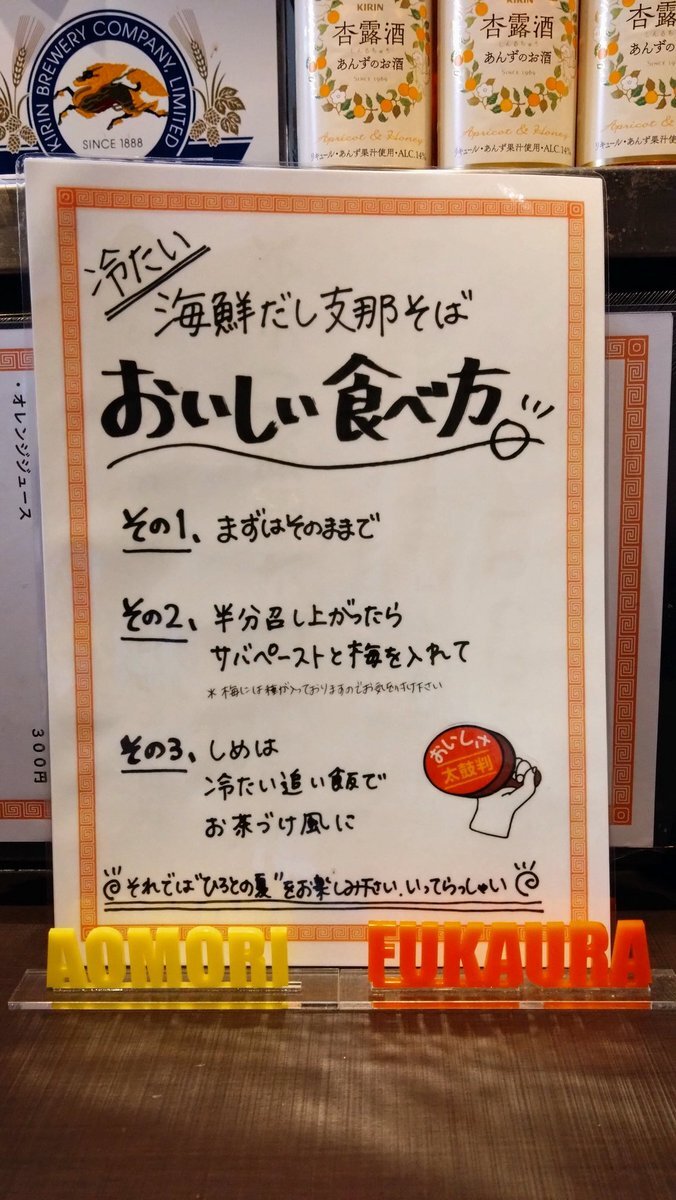 KIRIN BREWERY COMPANY, LIMITED
SINCE 1888
KIRIN
杏露酒
しんるちゅう
あんずのお酒
SINCE 1969
Apricot & Honey
リキュール・あんず果汁使用・ALC.14%
杏露酒
しんるちゅう
あんずのお酒
SINCE 1969
Apricot & Honey
リキュール・あんず果汁使用・ALC.14%
KIRIN
杏露酒
あんずのお酒
SINCE 1969
Apricot & Honey
リキュール・あんず果汁使用・ALC.14
・オレンジジュース
300円
冷たい
海鮮だし支那そば
おいしい食べ方
その1、まずはそのままで
その2、半分召し上がったら
サバペーストと梅を入れて
*梅には種が入っておりますのでお気を付け下さい
その3、しめは
冷たい追い飯で
お茶づけ風に
おいしい
太鼓判
それでは"ひろとの夏"をお楽しみ下さい、いってらっしゃい
AOMORI FUKAURA